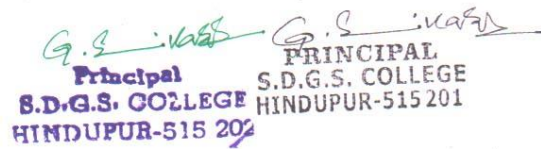 Principal
S.D.G.S. COLLEGE
HINDUPUR-515 202
PRINCIPAL
S.D.G.S. COLLEGE
HINDUPUR-515 201